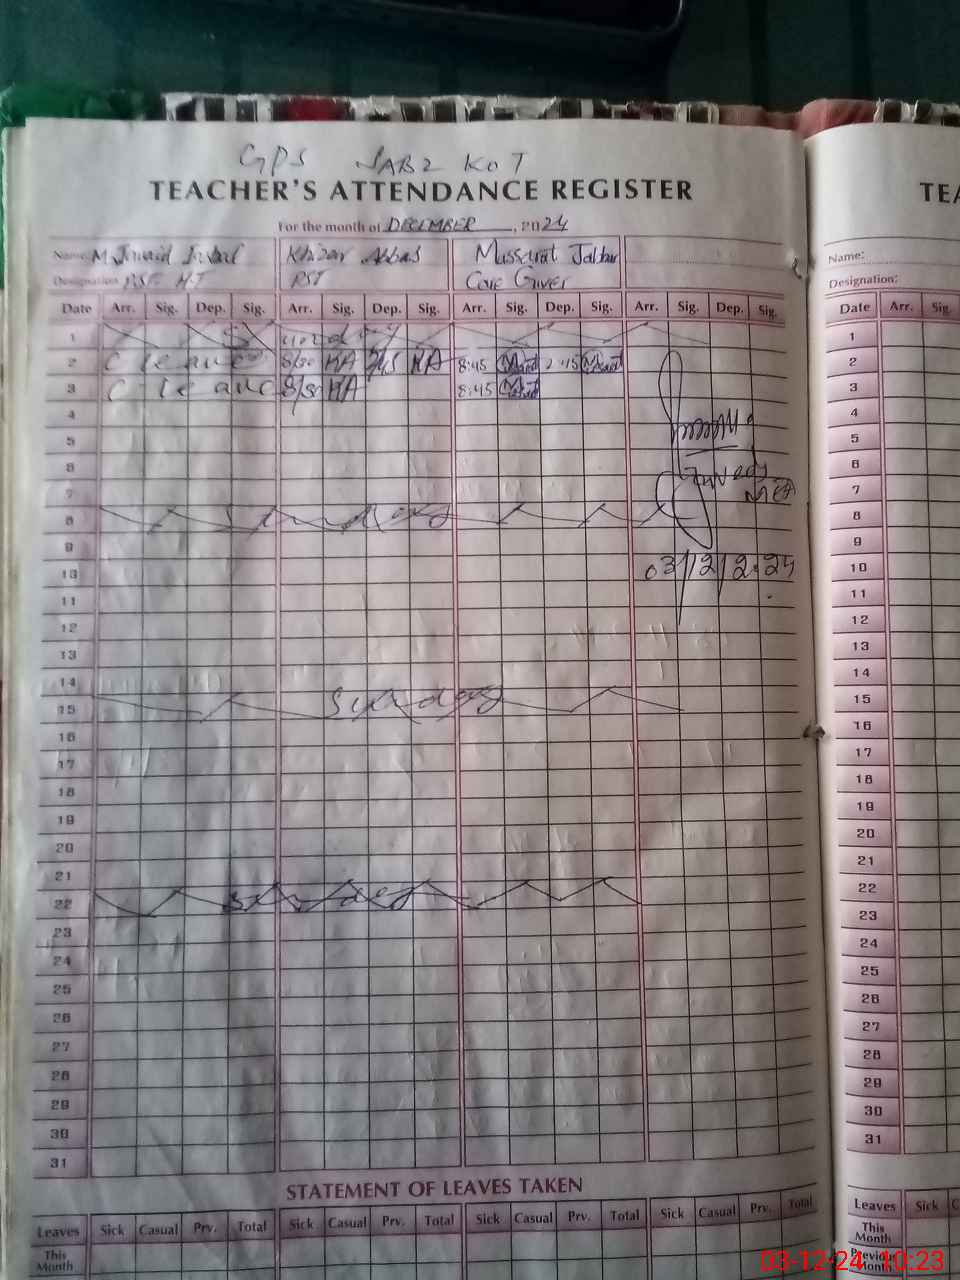 GPS SABZ KOT
TEACHER'S ATTENDANCE REGISTER
For the month of DECEMBER, 2024
Name: M Javaid Iqbal Khizar Abbas Mussarat Jabbar
Designation: PST Care Giver
Date Arr. Sig. Dep. Sig. Arr. Sig. Dep. Sig. Arr. Sig. Dep. Sig. Arr. Sig. Dep. Sig.
1 Sunday
2 C leave 8/30 KA KA 8:45 2:45
3 C leave 8/30 KA 8:45
4
5
6
7
8 Sunday
9
10
11
12
13
14
15 Sunday
16
17
18
19
20
21
22 Sunday
23
24
25
26
27
28
29
30
31
MEA
03/12/2024
STATEMENT OF LEAVES TAKEN
Leaves Sick Casual Prv. Total Sick Casual Prv. Total Sick Casual Prv. Total Sick Casual Prv. Total
This Month
TEA
Name:
Designation:
Date Arr. Sig.
1
2
3
4
5
6
7
8
9
10
11
12
13
14
15
16
17
18
19
20
21
22
23
24
25
26
27
28
29
30
31
Leaves Sick C
This
Month
Previous
Month
03-12-24 10:23